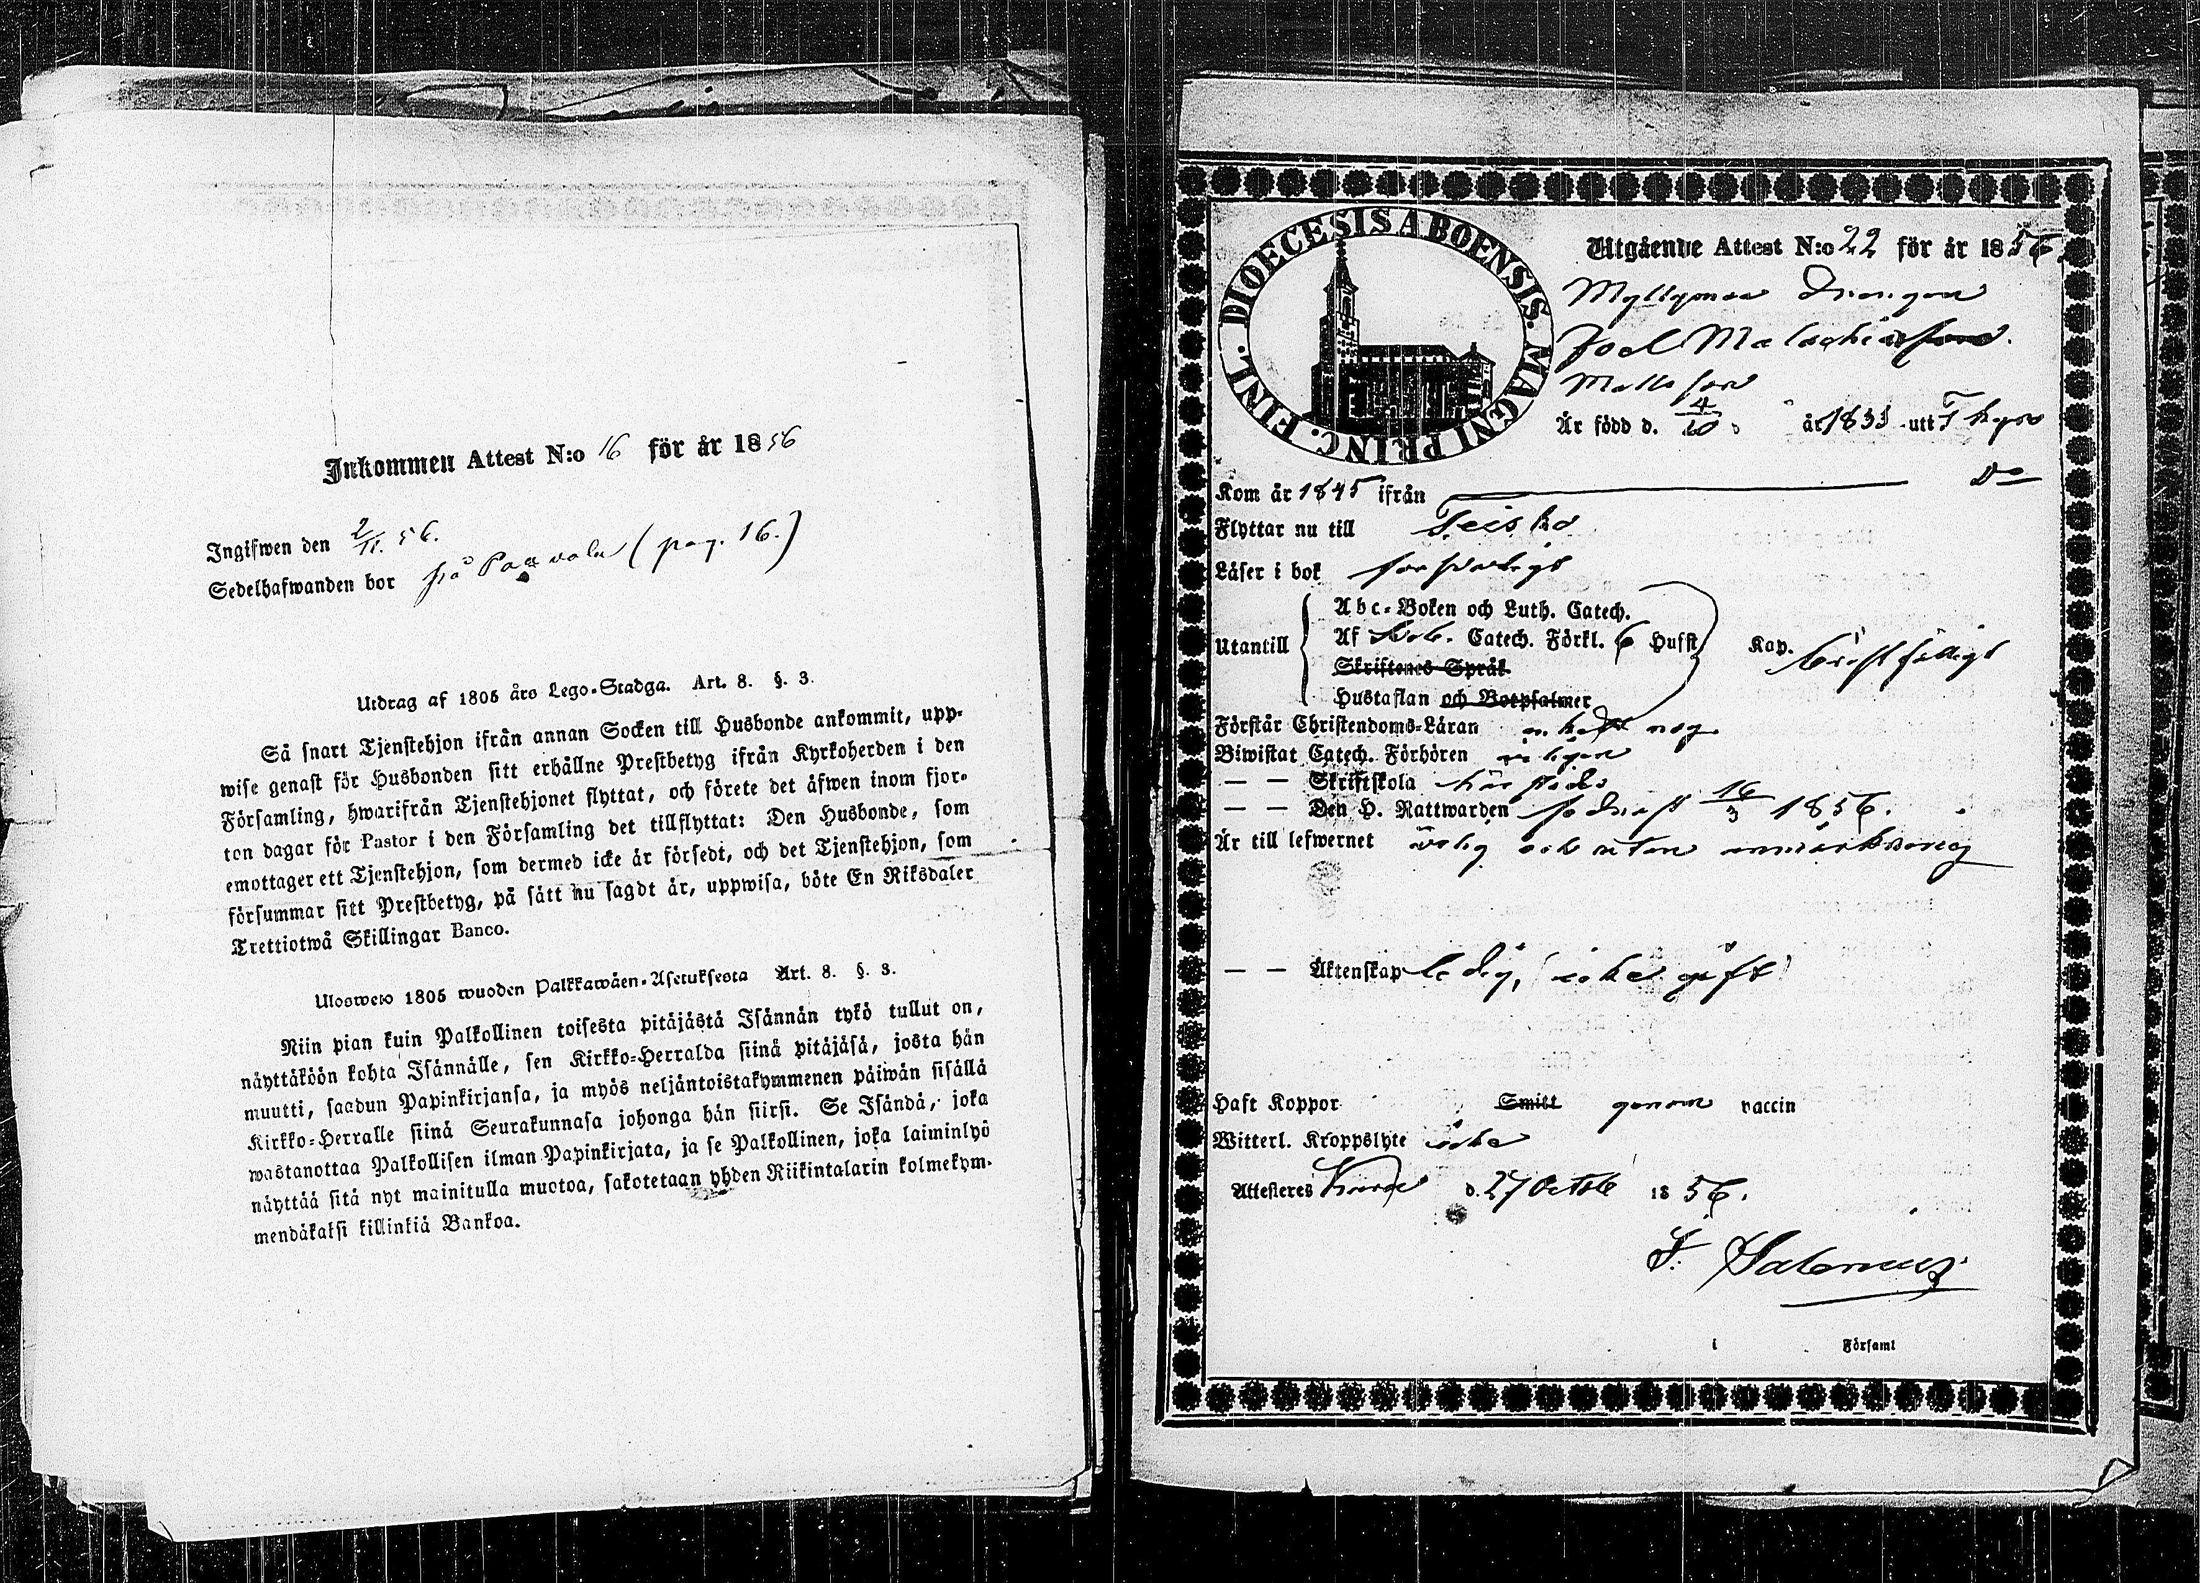 Inkommen Attest N:o 16 för år 1856
Ingifwen den 2/11. 56.
Sedelhafwanden bor på Paavola (pag. 16.)
Utdrag af 1805 års Lego-Stadga. Art. 8. §. 3.
Så snart Tjenstehjon ifrån annan Socken till Husbonde ankommit, upp-
wise genast för Husbonden sitt erhållne Prestbetyg ifrån Kyrkoherden i den
Församling, hwarifrån Tjenstehjonet flyttat, och förete det äfwen inom fjor-
ton dagar för Pastor i den Församling det tillflyttat: Den Husbonde, som
emottager ett Tjenstehjon, som dermed icke är försedt, och det Tjenstehjon, som
försummar sitt Prestbetyg, på sätt nu sagdt är, uppwisa, böte En Riksdaler
Trettiotwå Skillingar Banco.
Ulosweto 1805 wuoden Palkkawäen-Asetuksesta Art. 8. §. 3.
Niin pian kuin Palkollinen toisesta pitäjästä Isännän tykö tullut on,
näyttäköön kohta Isännälle, sen Kirkko-Herralda siinä pitäjäsä, josta hän
muutti, saadun Papinkirjansa, ja myös neljäntoistakymmenen päiwän sisällä
Kirkko-Herralle siinä Seurakunnasa johonga hän siirsi. Se Isändä, joka
wastanottaa Palkollisen ilman Papinkirjata, ja se Palkollinen, joka laiminlyö
näyttää sitä nyt mainitulla muotoa, sakotetaan yhden Riikintalarin kolmekym-
mendäkaksi killinkiä Bankoa.
DIOECESIS ABOENSIS. MAGNI PRINC. FINL.
Utgående Attest N:o 22 för år 1856
Drengen
Joel Malachiasson.
Matts son
Är född d. 4/10 år 1833 utt
Kom år 1845 ifrån Do
Flyttar nu till Teisko
Läser i bok försvarligt
Utantill
Abc-Boken och Luth. Catech.
Af Catech. Förkl. 6 Hufst Kap. bristfälligt
Skriftenes Språk
Hustaflan och Botpsalmer
Förstår Christendoms-Läran enkelt nog
Biwistat Catech. Förhören årligen
— — Skriftskola härstädes
— — Den H. Nattwarden sednast 16/3 1856.
Är till lefwernet ärlig och utan anmärkning
— — Äktenskap ledig, icke gift
Haft Koppor Smitt genom vaccin
Witterl. Kroppslyte icke
Attesteras d. 27 Octob 1856.
F. Salenius
i Församl